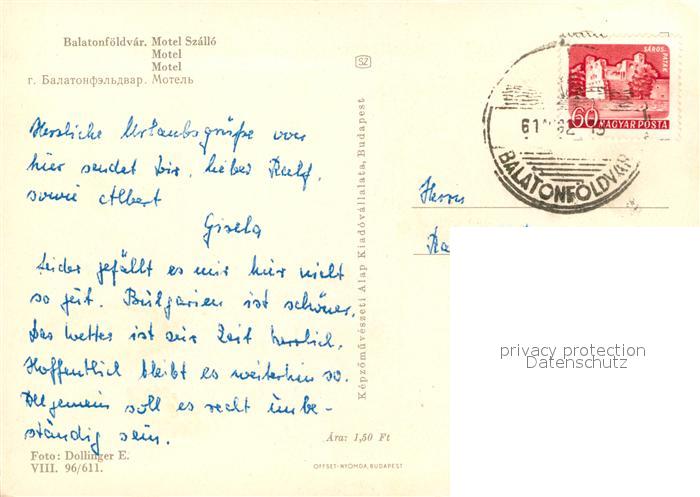 Balatonföldvár. Motel Szálló
Motel
Motel
г. Балатонфэльдвар. Мотель
SZ
SÁROS-
PATAK
60 MAGYAR POSTA
61
BALATONFÖLDVÁR
Herzliche Urlaubsgrüße von
hier sendet Dir, lieber Ralf,
sowie Albert
Gisela
Leider gefällt es mir hier nicht
so gut. Bulgarien ist schöner.
Das Wetter ist zur Zeit herrlich.
Hoffentlich bleibt es weiterhin so.
Allgemein soll es recht unbe-
ständig sein.
Képzőművészeti Alap Kiadóvállalata, Budapest
Herrn
privacy protection
Datenschutz
Ára: 1,50 Ft
Foto: Dollinger E.
VIII. 96/611.
OFFSET-NYOMDA, BUDAPEST